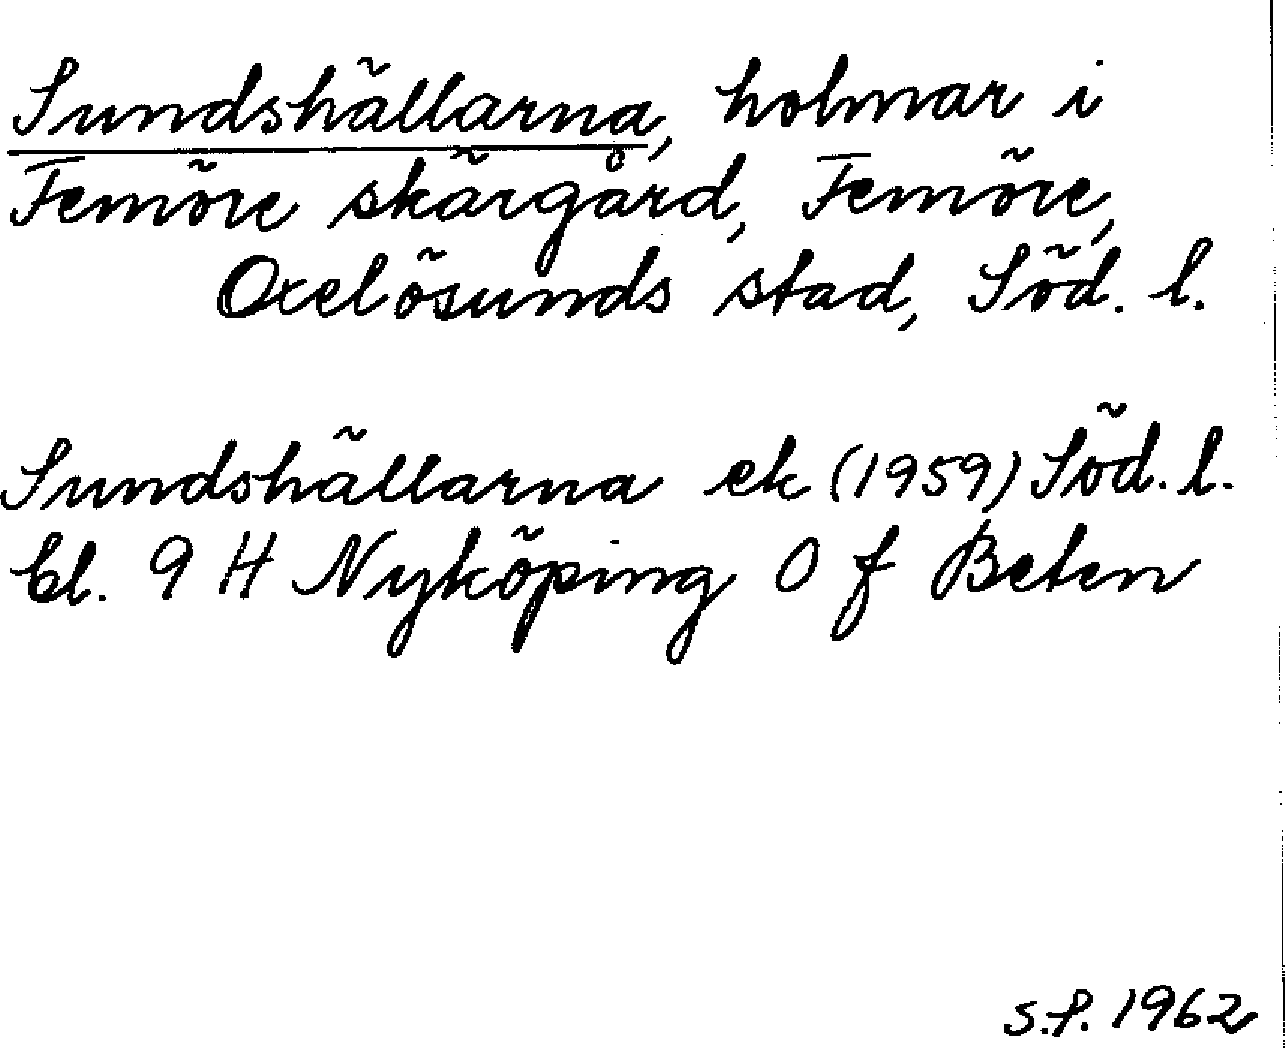 Sundshällarna, holmar i
Femöre skärgård, Femöre,
Oxelösunds stad, Söd. l.
Sundshällarna ek (1959) Söd. l.
bl. 9 H Nyköping O f Beten
S.P. 1962